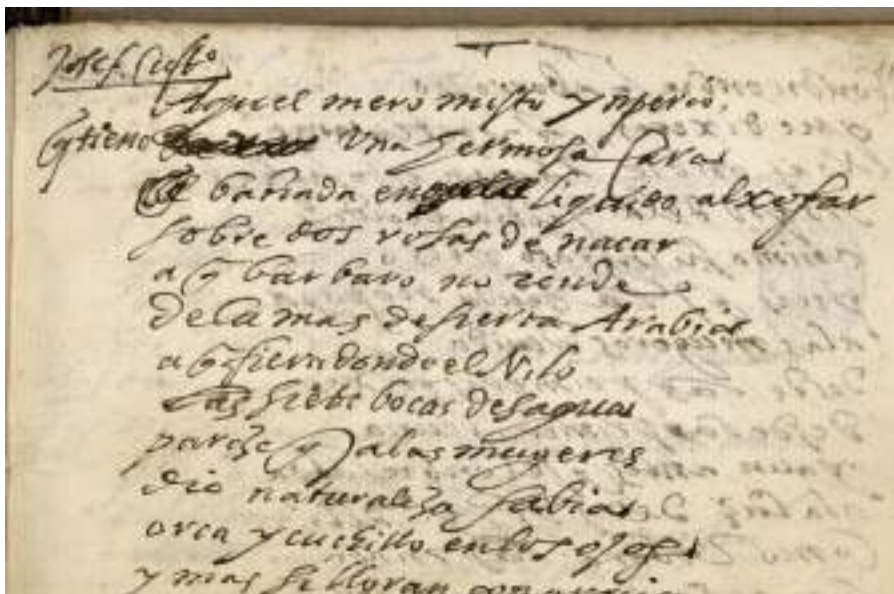 Aquel mero misto ynperio,
q tiene una hermosa cara
bañada en liquido alxofar
sobre dos rosas de nacar
a q barbaro no rinde
de la mas desierta Arabia
a q fiera donde el Nilo
las siete bocas desagua
pareze q a las mugeres
dio naturaleza sabia
orca y cuchillo en los ojos
y mas si lloran con